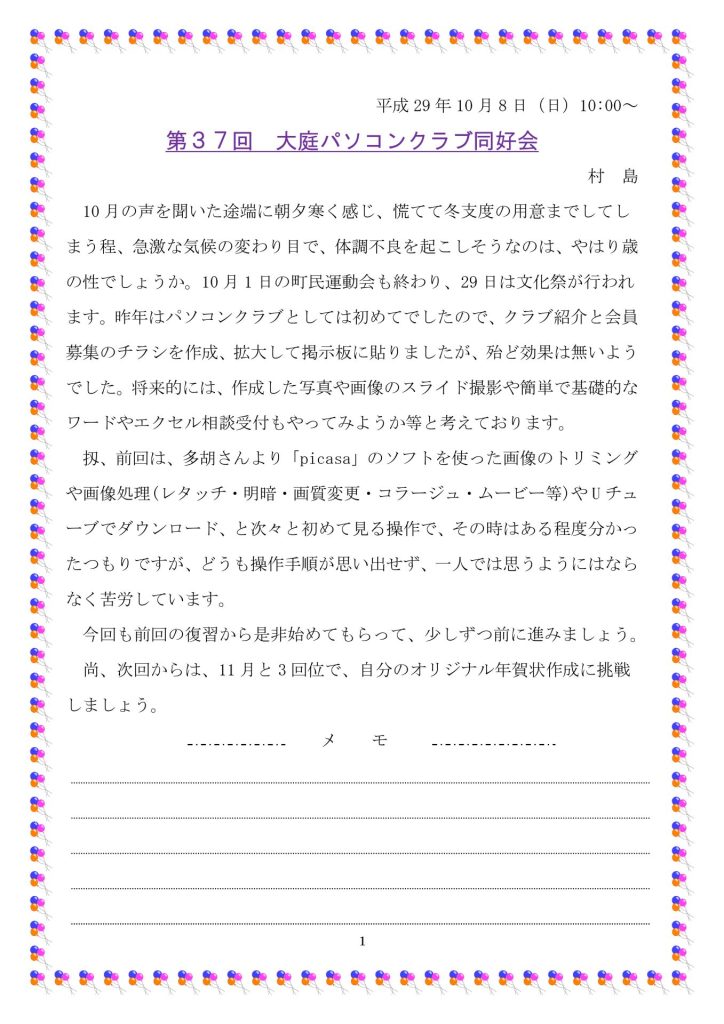 平成 29 年 10 月 8 日（日）10:00～
第３７回　大庭パソコンクラブ同好会
村　島
　10 月の声を聞いた途端に朝夕寒く感じ、慌てて冬支度の用意までしてし
まう程、急激な気候の変わり目で、体調不良を起こしそうなのは、やはり歳
の性でしょうか。10 月 1 日の町民運動会も終わり、29 日は文化祭が行われ
ます。昨年はパソコンクラブとしては初めてでしたので、クラブ紹介と会員
募集のチラシを作成、拡大して掲示板に貼りましたが、殆ど効果は無いよう
でした。将来的には、作成した写真や画像のスライド撮影や簡単で基礎的な
ワードやエクセル相談受付もやってみようか等と考えております。
　扨、前回は、多胡さんより「picasa」のソフトを使った画像のトリミング
や画像処理(レタッチ・明暗・画質変更・コラージュ・ムービー等)やＵチュ
ーブでダウンロード、と次々と初めて見る操作で、その時はある程度分かっ
たつもりですが、どうも操作手順が思い出せず、一人では思うようにはなら
なく苦労しています。
　今回も前回の復習から是非始めてもらって、少しずつ前に進みましょう。
　尚、次回からは、11 月と 3 回位で、自分のオリジナル年賀状作成に挑戦
しましょう。
メ　モ
1